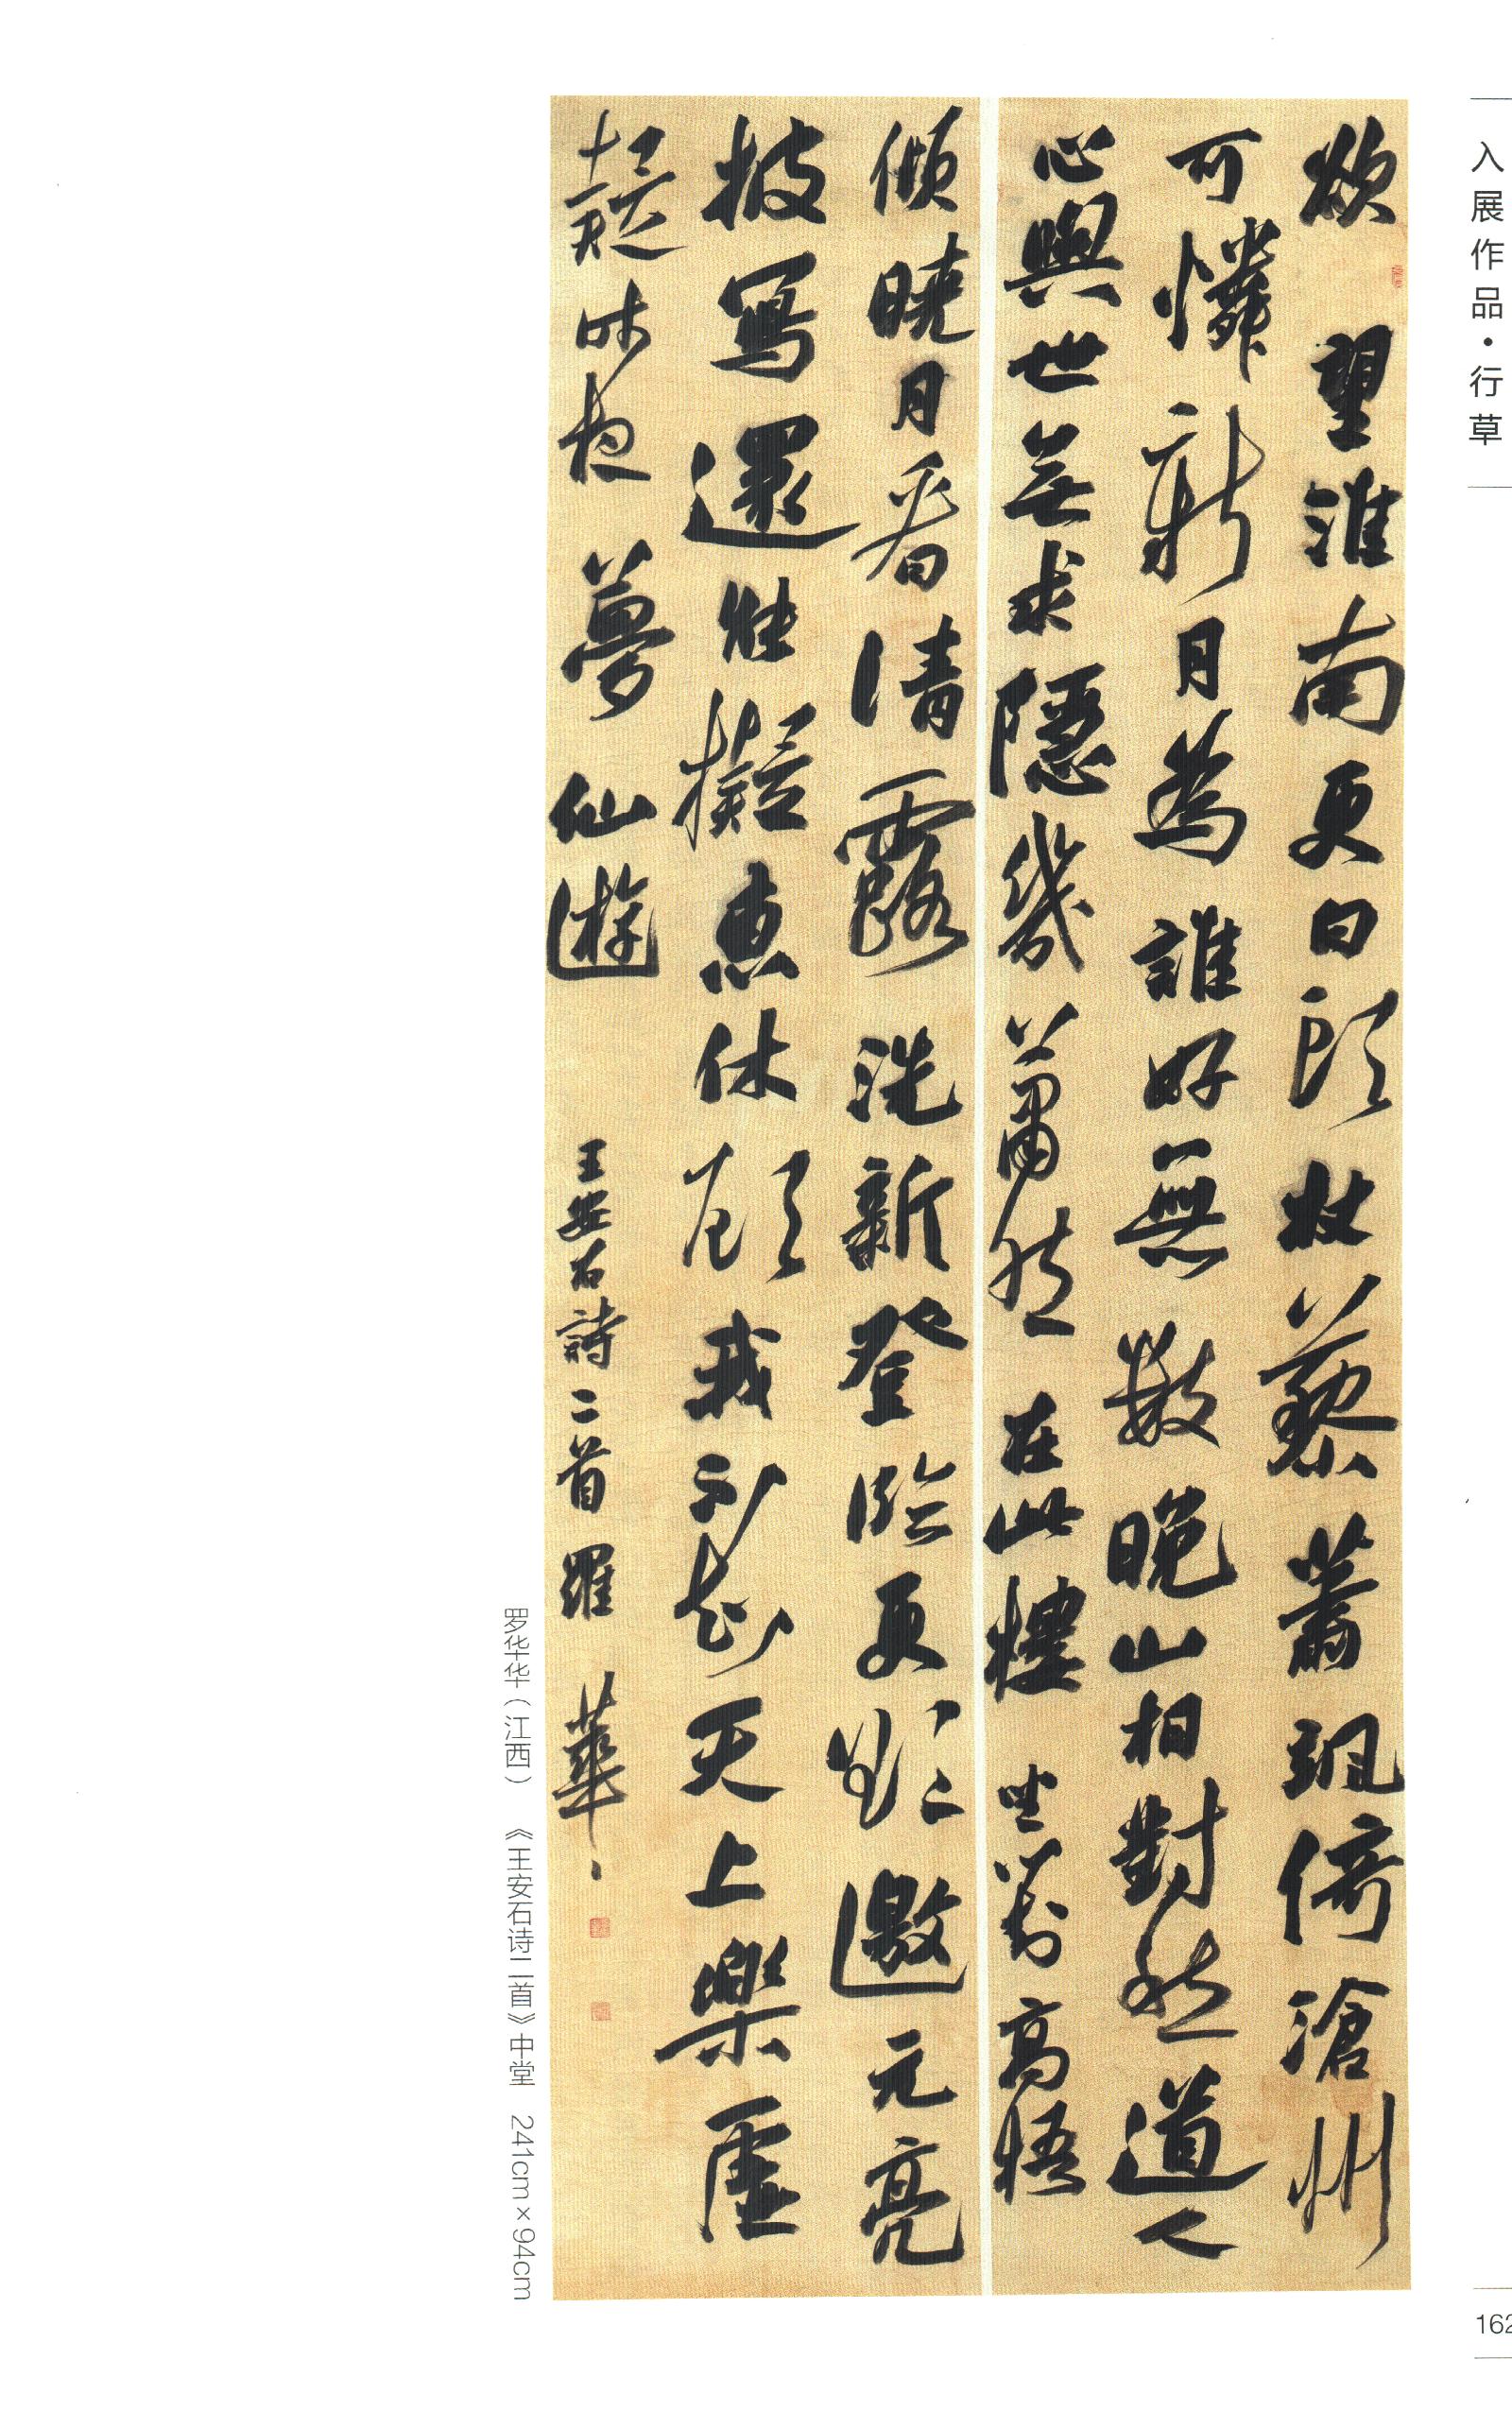 入展作品·行草
欲望淮南更白頭杖藜蕭颯倚滄州
可憐新月為誰好無數晚山相對愁道人
心與世無求隱几蕭然在此樓坐對高梧
傾曉月看清露洗新登臨更欲邀元亮
披寫還能擬惠休顧我不知天上樂虛
疑昨夜夢仙遊
王安石詩二首 羅華華
罗华华（江西） 《王安石诗二首》中堂 241cm×94cm
162